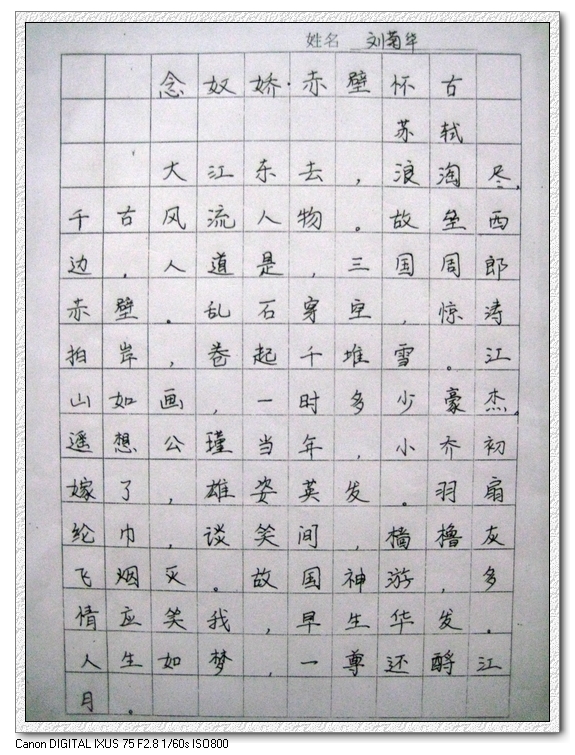 姓名 刘菊华
念奴娇·赤壁怀古
苏轼
大江东去，浪淘尽，
千古风流人物。故垒西
边，人道是，三国周郎
赤壁。乱石穿空，惊涛
拍岸，卷起千堆雪。江
山如画，一时多少豪杰。
遥想公瑾当年，小乔初
嫁了，雄姿英发。羽扇
纶巾，谈笑间，樯橹灰
飞烟灭。故国神游，多
情应笑我，早生华发。
人生如梦，一尊还酹江
月。
Canon DIGITAL IXUS 75 F2.8 1/60s ISO800